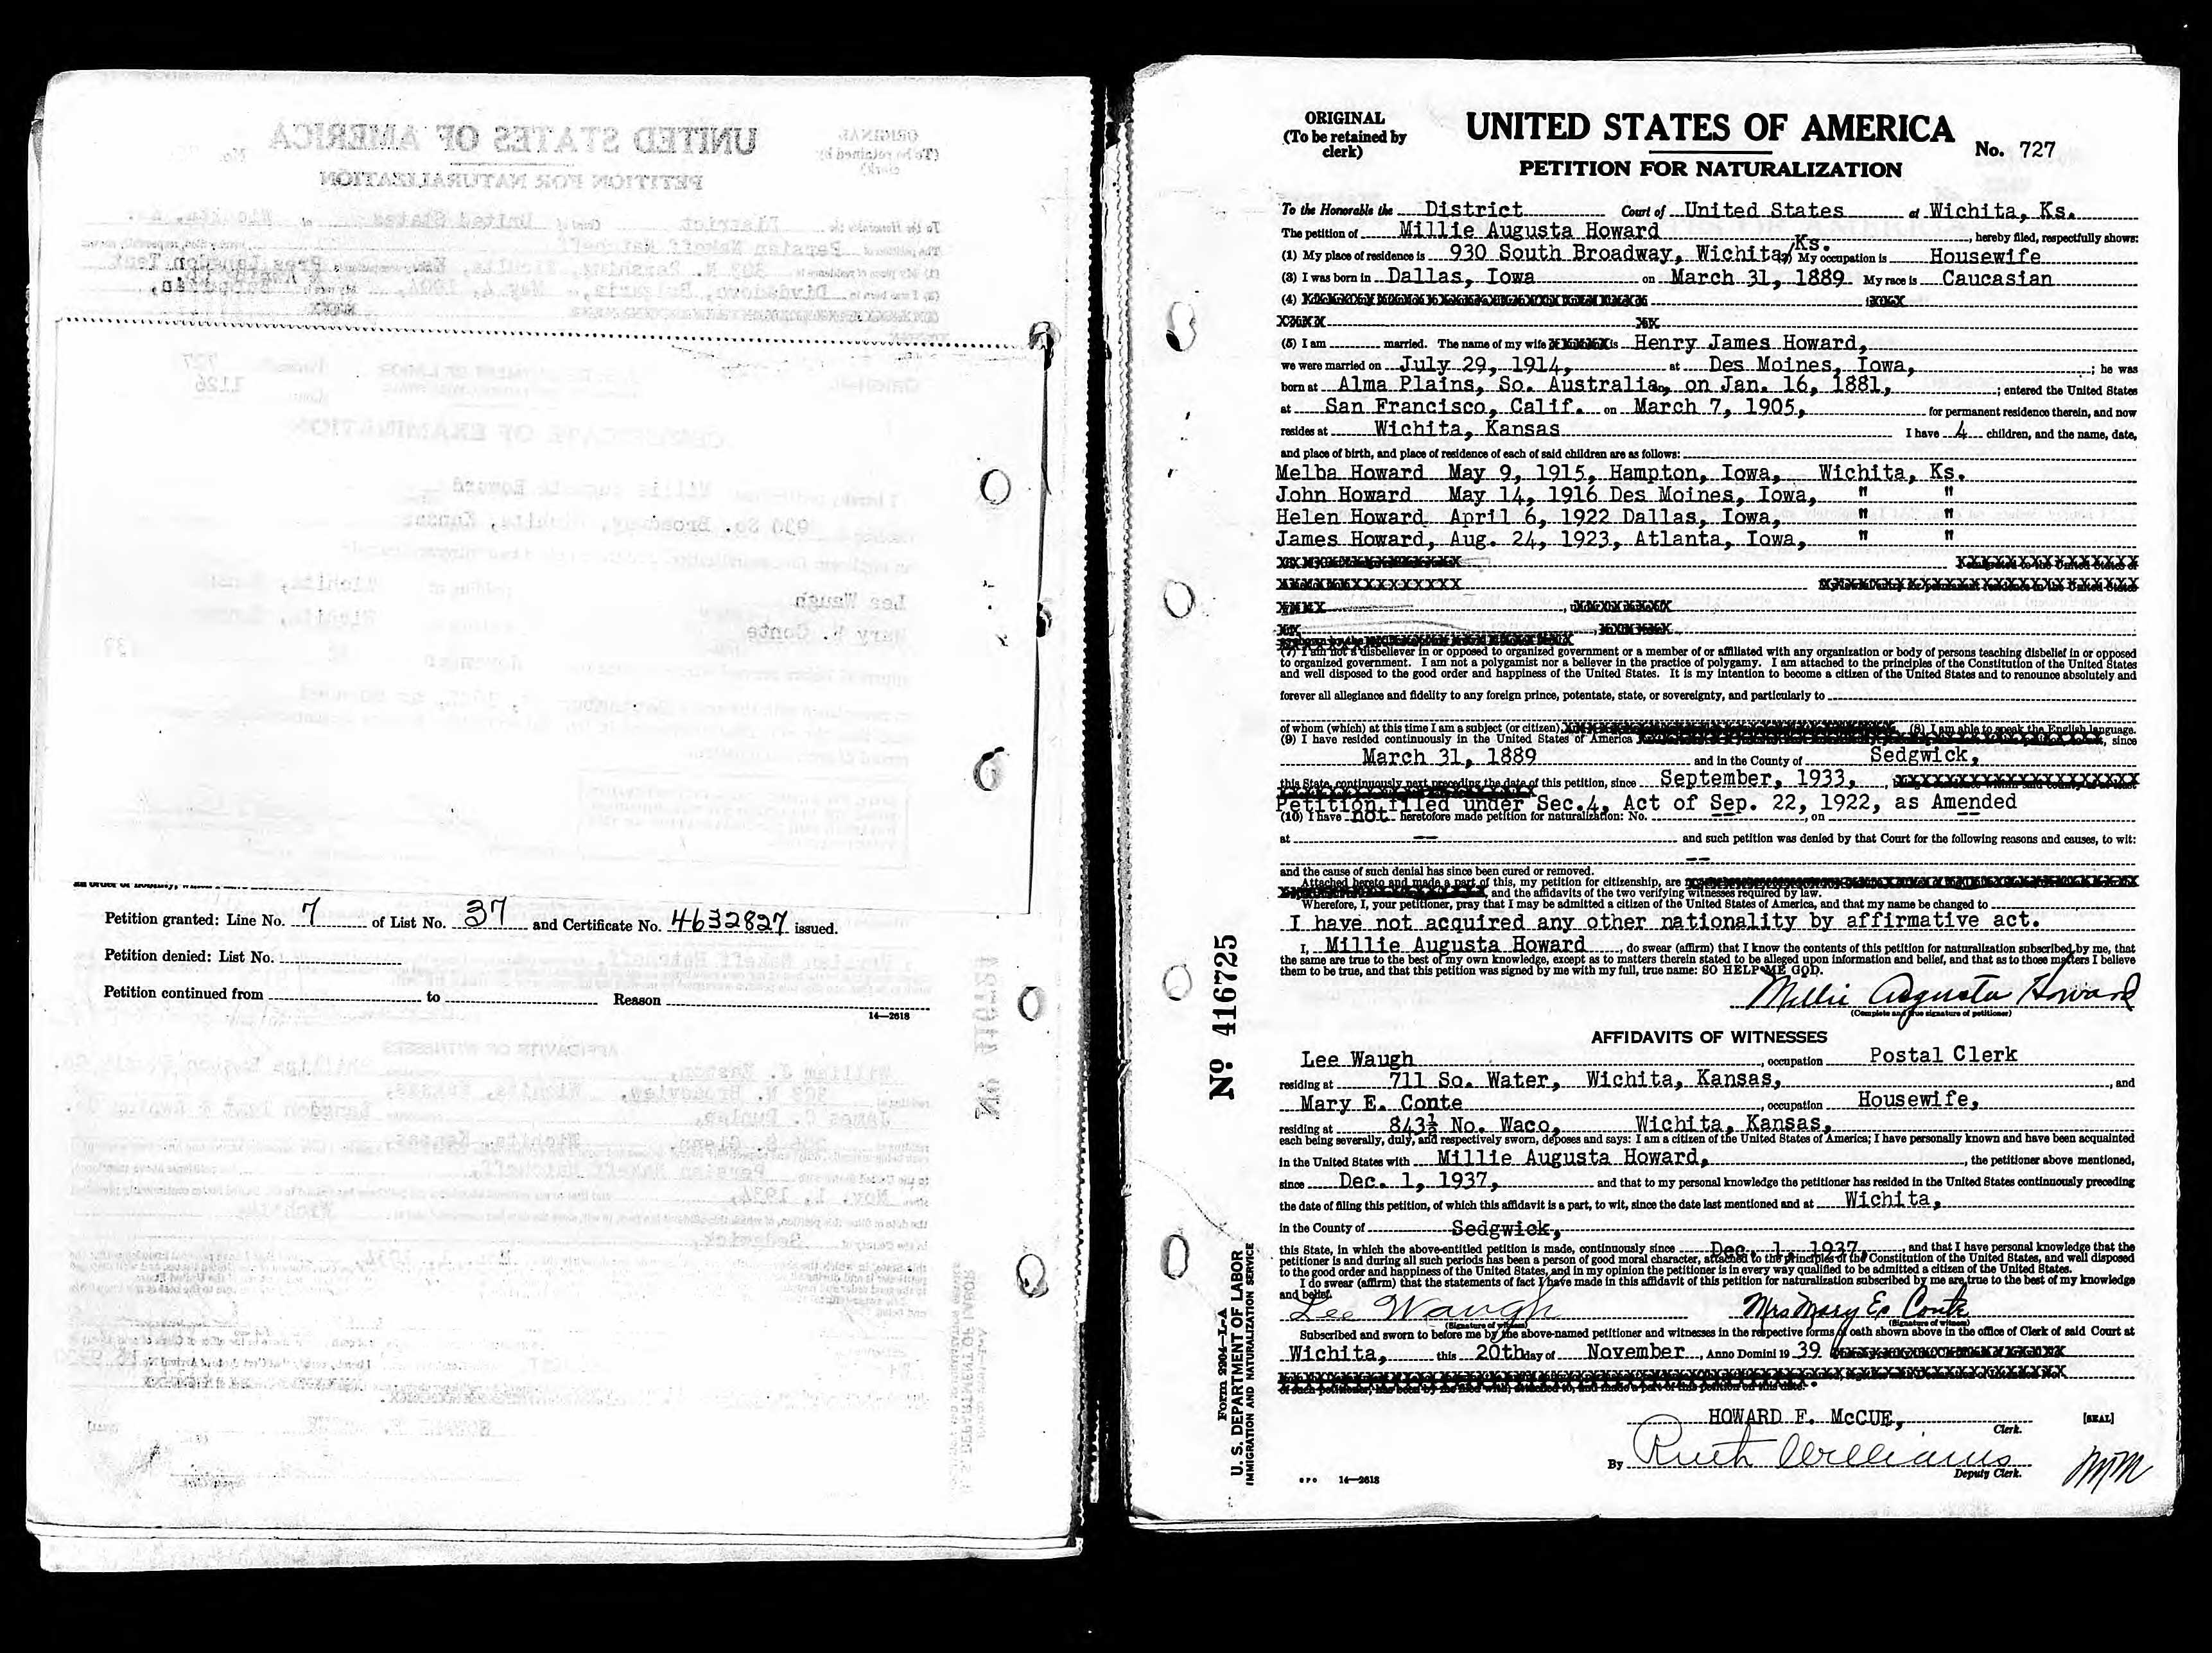 Petition granted: Line No. 7 of List No. 37 and Certificate No. 4632827 issued.
Petition denied: List No.
Petition continued from to Reason
14—2618
ORIGINAL
(To be retained by
clerk)
UNITED STATES OF AMERICA
No. 727
PETITION FOR NATURALIZATION
To the Honorable the District Court of United States at Wichita, Ks.
The petition of Millie Augusta Howard, hereby filed, respectfully shows:
(1) My place of residence is 930 South Broadway, Wichita, Ks. My occupation is Housewife
(3) I was born in Dallas, Iowa on March 31, 1889 My race is Caucasian
(4)
(5) I am married. The name of my wife is Henry James Howard,
we were married on July 29, 1914, at Des Moines, Iowa, ; he was
born at Alma Plains, So. Australia, on Jan. 16, 1881, ; entered the United States
at San Francisco, Calif. on March 7, 1905, for permanent residence therein, and now
resides at Wichita, Kansas I have 4 children, and the name, date,
and place of birth, and place of residence of each of said children are as follows:
Melba Howard May 9, 1915, Hampton, Iowa, Wichita, Ks.
John Howard May 14, 1916 Des Moines, Iowa, " "
Helen Howard April 6, 1922 Dallas, Iowa, " "
James Howard, Aug. 24, 1923, Atlanta, Iowa, " "
(7) I am not a disbeliever in or opposed to organized government or a member of or affiliated with any organization or body of persons teaching disbelief in or opposed
to organized government. I am not a polygamist nor a believer in the practice of polygamy. I am attached to the principles of the Constitution of the United States
and well disposed to the good order and happiness of the United States. It is my intention to become a citizen of the United States and to renounce absolutely and
forever all allegiance and fidelity to any foreign prince, potentate, state, or sovereignty, and particularly to
of whom (which) at this time I am a subject (or citizen) (8) I am able to speak the English language.
(9) I have resided continuously in the United States of America , since
March 31, 1889 and in the County of Sedgwick,
this State, continuously next preceding the date of this petition, since September, 1933,
Petition filed under Sec.4, Act of Sep. 22, 1922, as Amended
(10) I have not heretofore made petition for naturalization: No. -- , on --
at -- and such petition was denied by that Court for the following reasons and causes, to wit:
--
and the cause of such denial has since been cured or removed.
Attached hereto and made a part of this, my petition for citizenship, are
and the affidavits of the two verifying witnesses required by law.
Wherefore, I, your petitioner, pray that I may be admitted a citizen of the United States of America, and that my name be changed to
I have not acquired any other nationality by affirmative act.
I, Millie Augusta Howard, do swear (affirm) that I know the contents of this petition for naturalization subscribed by me, that
the same are true to the best of my own knowledge, except as to matters therein stated to be alleged upon information and belief, and that as to those matters I believe
them to be true, and that this petition was signed by me with my full, true name: SO HELP ME GOD.
Millie Augusta Howard
(Complete and true signature of petitioner)
AFFIDAVITS OF WITNESSES
Lee Waugh, occupation Postal Clerk
residing at 711 So. Water, Wichita, Kansas, , and
Mary E. Conte, occupation Housewife,
residing at 843½ No. Waco, Wichita, Kansas,
each being severally, duly, and respectively sworn, deposes and says: I am a citizen of the United States of America; I have personally known and have been acquainted
in the United States with Millie Augusta Howard, , the petitioner above mentioned,
since Dec. 1, 1937, and that to my personal knowledge the petitioner has resided in the United States continuously preceding
the date of filing this petition, of which this affidavit is a part, to wit, since the date last mentioned and at Wichita,
in the County of Sedgwick,
this State, in which the above-entitled petition is made, continuously since Dec. 1, 1937, and that I have personal knowledge that the
petitioner is and during all such periods has been a person of good moral character, attached to the principles of the Constitution of the United States, and well disposed
to the good order and happiness of the United States, and in my opinion the petitioner is in every way qualified to be admitted a citizen of the United States.
I do swear (affirm) that the statements of fact I have made in this affidavit of this petition for naturalization subscribed by me are true to the best of my knowledge
and belief.
Lee Waugh Mrs Mary E. Conte
(Signature of witness) (Signature of witness)
Subscribed and sworn to before me by the above-named petitioner and witnesses in the respective forms of oath shown above in the office of Clerk of said Court at
Wichita, this 20th day of November, Anno Domini 19 39
of such petitioner, has been by me filed with, attached to, and made a part of this petition on this date.
HOWARD F. McCUE,
Clerk.
[SEAL]
By Ruth Williams
Deputy Clerk.
MM
GPO 14—2618
No 416725
Form 2204—L-A
U. S. DEPARTMENT OF LABOR
IMMIGRATION AND NATURALIZATION SERVICE